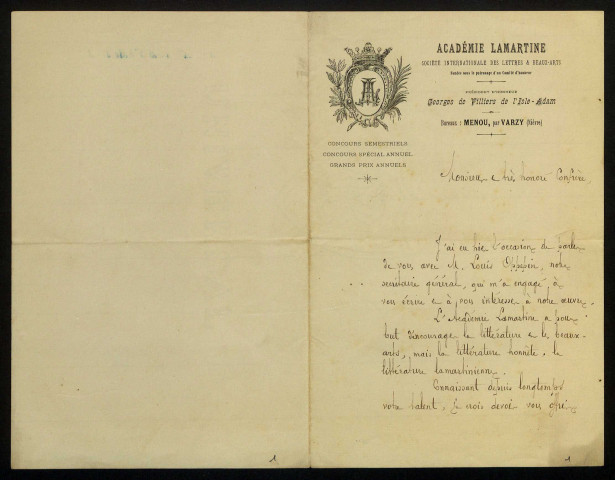 ACADÉMIE LAMARTINE
SOCIÉTÉ INTERNATIONALE DES LETTRES & BEAUX-ARTS
Fondée sous le patronage d'un Comité d'honneur
PRÉSIDENT D'HONNEUR
Georges de Villiers de l'Isle-Adam
Bureaux : MENOU, par VARZY (Nièvre)
CONCOURS SEMESTRIELS
CONCOURS SPÉCIAL ANNUEL
GRANDS PRIX ANNUELS
Monsieur et très honoré Confrère
J'ai eu hier l'occasion de parler
de vous avec M. Louis notre
secrétaire général, qui m'a engagé à
vous écrire et à vous intéresser à notre œuvre.
L'Académie Lamartine a pour
but d'encourager la littérature et les beaux-
arts, mais la littérature honnête, la
littérature lamartinienne.
Connaissant depuis longtemps
votre talent, je crois devoir vous offrir
1
1